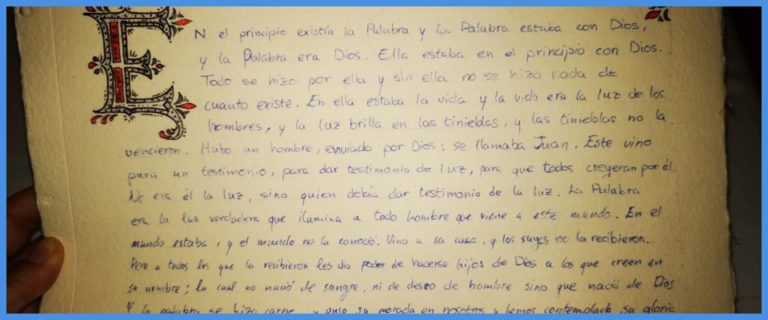 EN el principio existía la Palabra y la Palabra estaba con Dios,
y la Palabra era Dios. Ella estaba en el principio con Dios.
Todo se hizo por ella y sin ella no se hizo nada de
cuanto existe. En ella estaba la vida y la vida era la luz de los
hombres, y la luz brilla en las tinieblas, y las tinieblas no la
vencieron. Hubo un hombre, enviado por Dios: se llamaba Juan. Este vino
para un testimonio, para dar testimonio de luz, para que todos creyeran por él.
No era él la luz, sino quien debía dar testimonio de la luz. La Palabra
era la luz verdadera que ilumina a todo hombre que viene a este mundo. En el
mundo estaba, y el mundo no la conoció. Vino a su casa, y los suyos no la recibieron.
Pero a todos los que la recibieron les dio poder de hacerse hijos de Dios a los que creen en
su nombre; la cual no nació de sangre, ni de deseo de hombre sino que nació de Dios
Y la palabra se hizo carne y puso su morada en nosotros y hemos contemplado su gloria